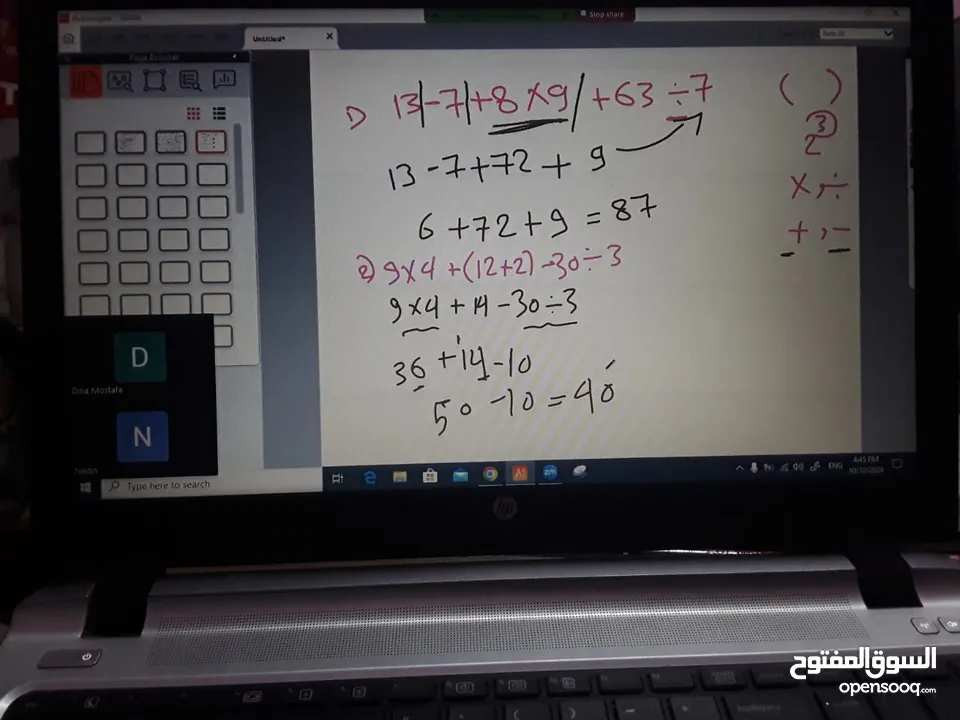 Stop share
Untitled*
Page Browser
1) 13 - 7 + 8 × 9 + 63 ÷ 7
13 - 7 + 72 + 9
6 + 72 + 9 = 87
2) 9 × 4 + (12 + 2) - 30 ÷ 3
9 × 4 + 14 - 30 ÷ 3
36 + 14 - 10
50 - 10 = 40
( )
2³
×, ÷
+, -
D
Dina Mostafa
N
Nadin
Type here to search
zm
ENG
4:45 PM
10/10/2024
hp
السوق المفتوح
opensooq.com